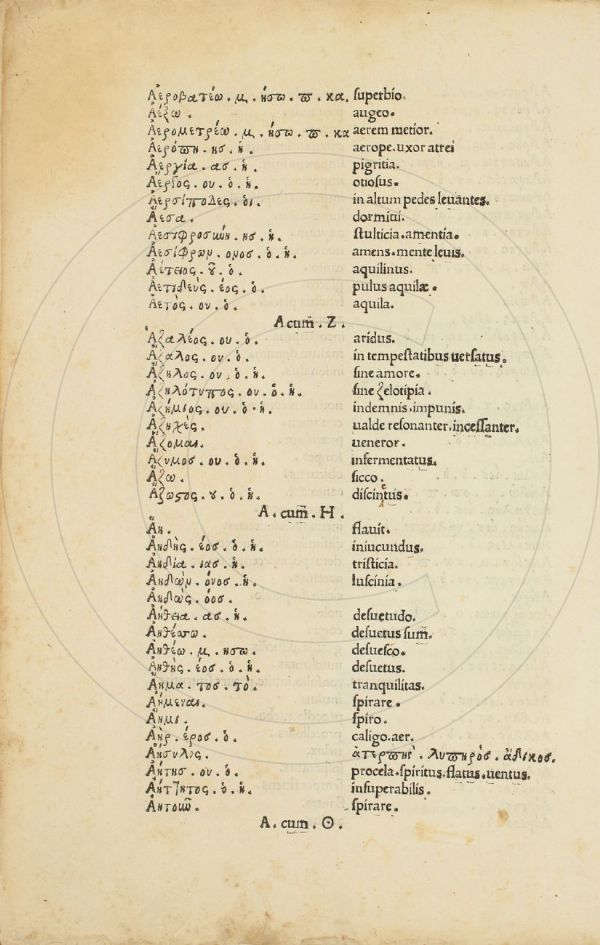 Ἀεροβατέω . μ . ήσω . π . κα . superbio.
Ἀέξω . augeo.
Ἀερομετρέω . μ . ήσω . π . κα aerem metior.
Ἀερόπη . ησ . ἡ . aerope . uxor atrei
Ἀεργία . ασ . ἡ . pigritia.
Ἀεργός . ου . ὁ . ἡ . otiosus.
Ἀερσίποδες . οἱ . in altum pedes leuantes.
Ἄεσα . dormiui.
Ἀεσιφροσύνη . ησ . ἡ . stulticia . amentia.
Ἀεσίφρων . ονοσ . ὁ . ἡ . amens . mente leuis.
Ἀέτειος . ου . ὁ . aquilinus.
Ἀετιδεὺς . έος . ὁ . pulus aquilæ .
Ἀετὸς . ου . ὁ . aquila.
A cum̄ . Z .
Ἀζαλέος . ου . ὁ . aridus.
Ἄζαλος . ου . ὁ . in tempestatibus uersatus.
Ἄζηλος . ου . ὁ . ἡ . sine amore.
Ἀζηλότυπος . ου . ὁ . ἡ . sine zelotipia.
Ἀζήμιος . ου . ὁ . ἡ . indemnis . impunis.
Ἀζηχὲς . ualde resonanter . incessanter.
Ἅζομαι . ueneror.
Ἄζυμος . ου . ὁ . ἡ . infermentatus.
Ἄζω . sicco.
Ἄζωστος . ου . ὁ . ἡ . discintus .
A . cum̄ . H .
Ἄη . flauit.
Ἀηδὴς . έοσ . ὁ . ἡ . iniucundus.
Ἀηδία . ιασ . ἡ . tristicia.
Ἀηδὼν . όνοσ . ἡ . luscinia.
Ἀηδὼς . όοσ .
Ἀήθεια . ασ . ἡ . desuetudo.
Ἀηθέσσω . desuetus sum̄.
Ἀηθέω . μ . ησω . desuesco.
Ἀήθης . έοσ . ὁ . ἡ . desuetus.
Ἄημα . τοσ . τὸ . tranquilitas.
Ἀήμεναι . spirare.
Ἄημι . spiro.
Ἀὴρ . έροσ . ὁ . caligo . aer.
Ἀήσυλος . ἀτερπής . λυπηρὸσ . ἄδικοσ.
Ἀήτησ . ου . ὁ . procela . spiritus . flatus . uentus.
Ἀήττητος . ὁ . ἡ . insuperabilis.
spirare .
A . cum̄ . Θ .